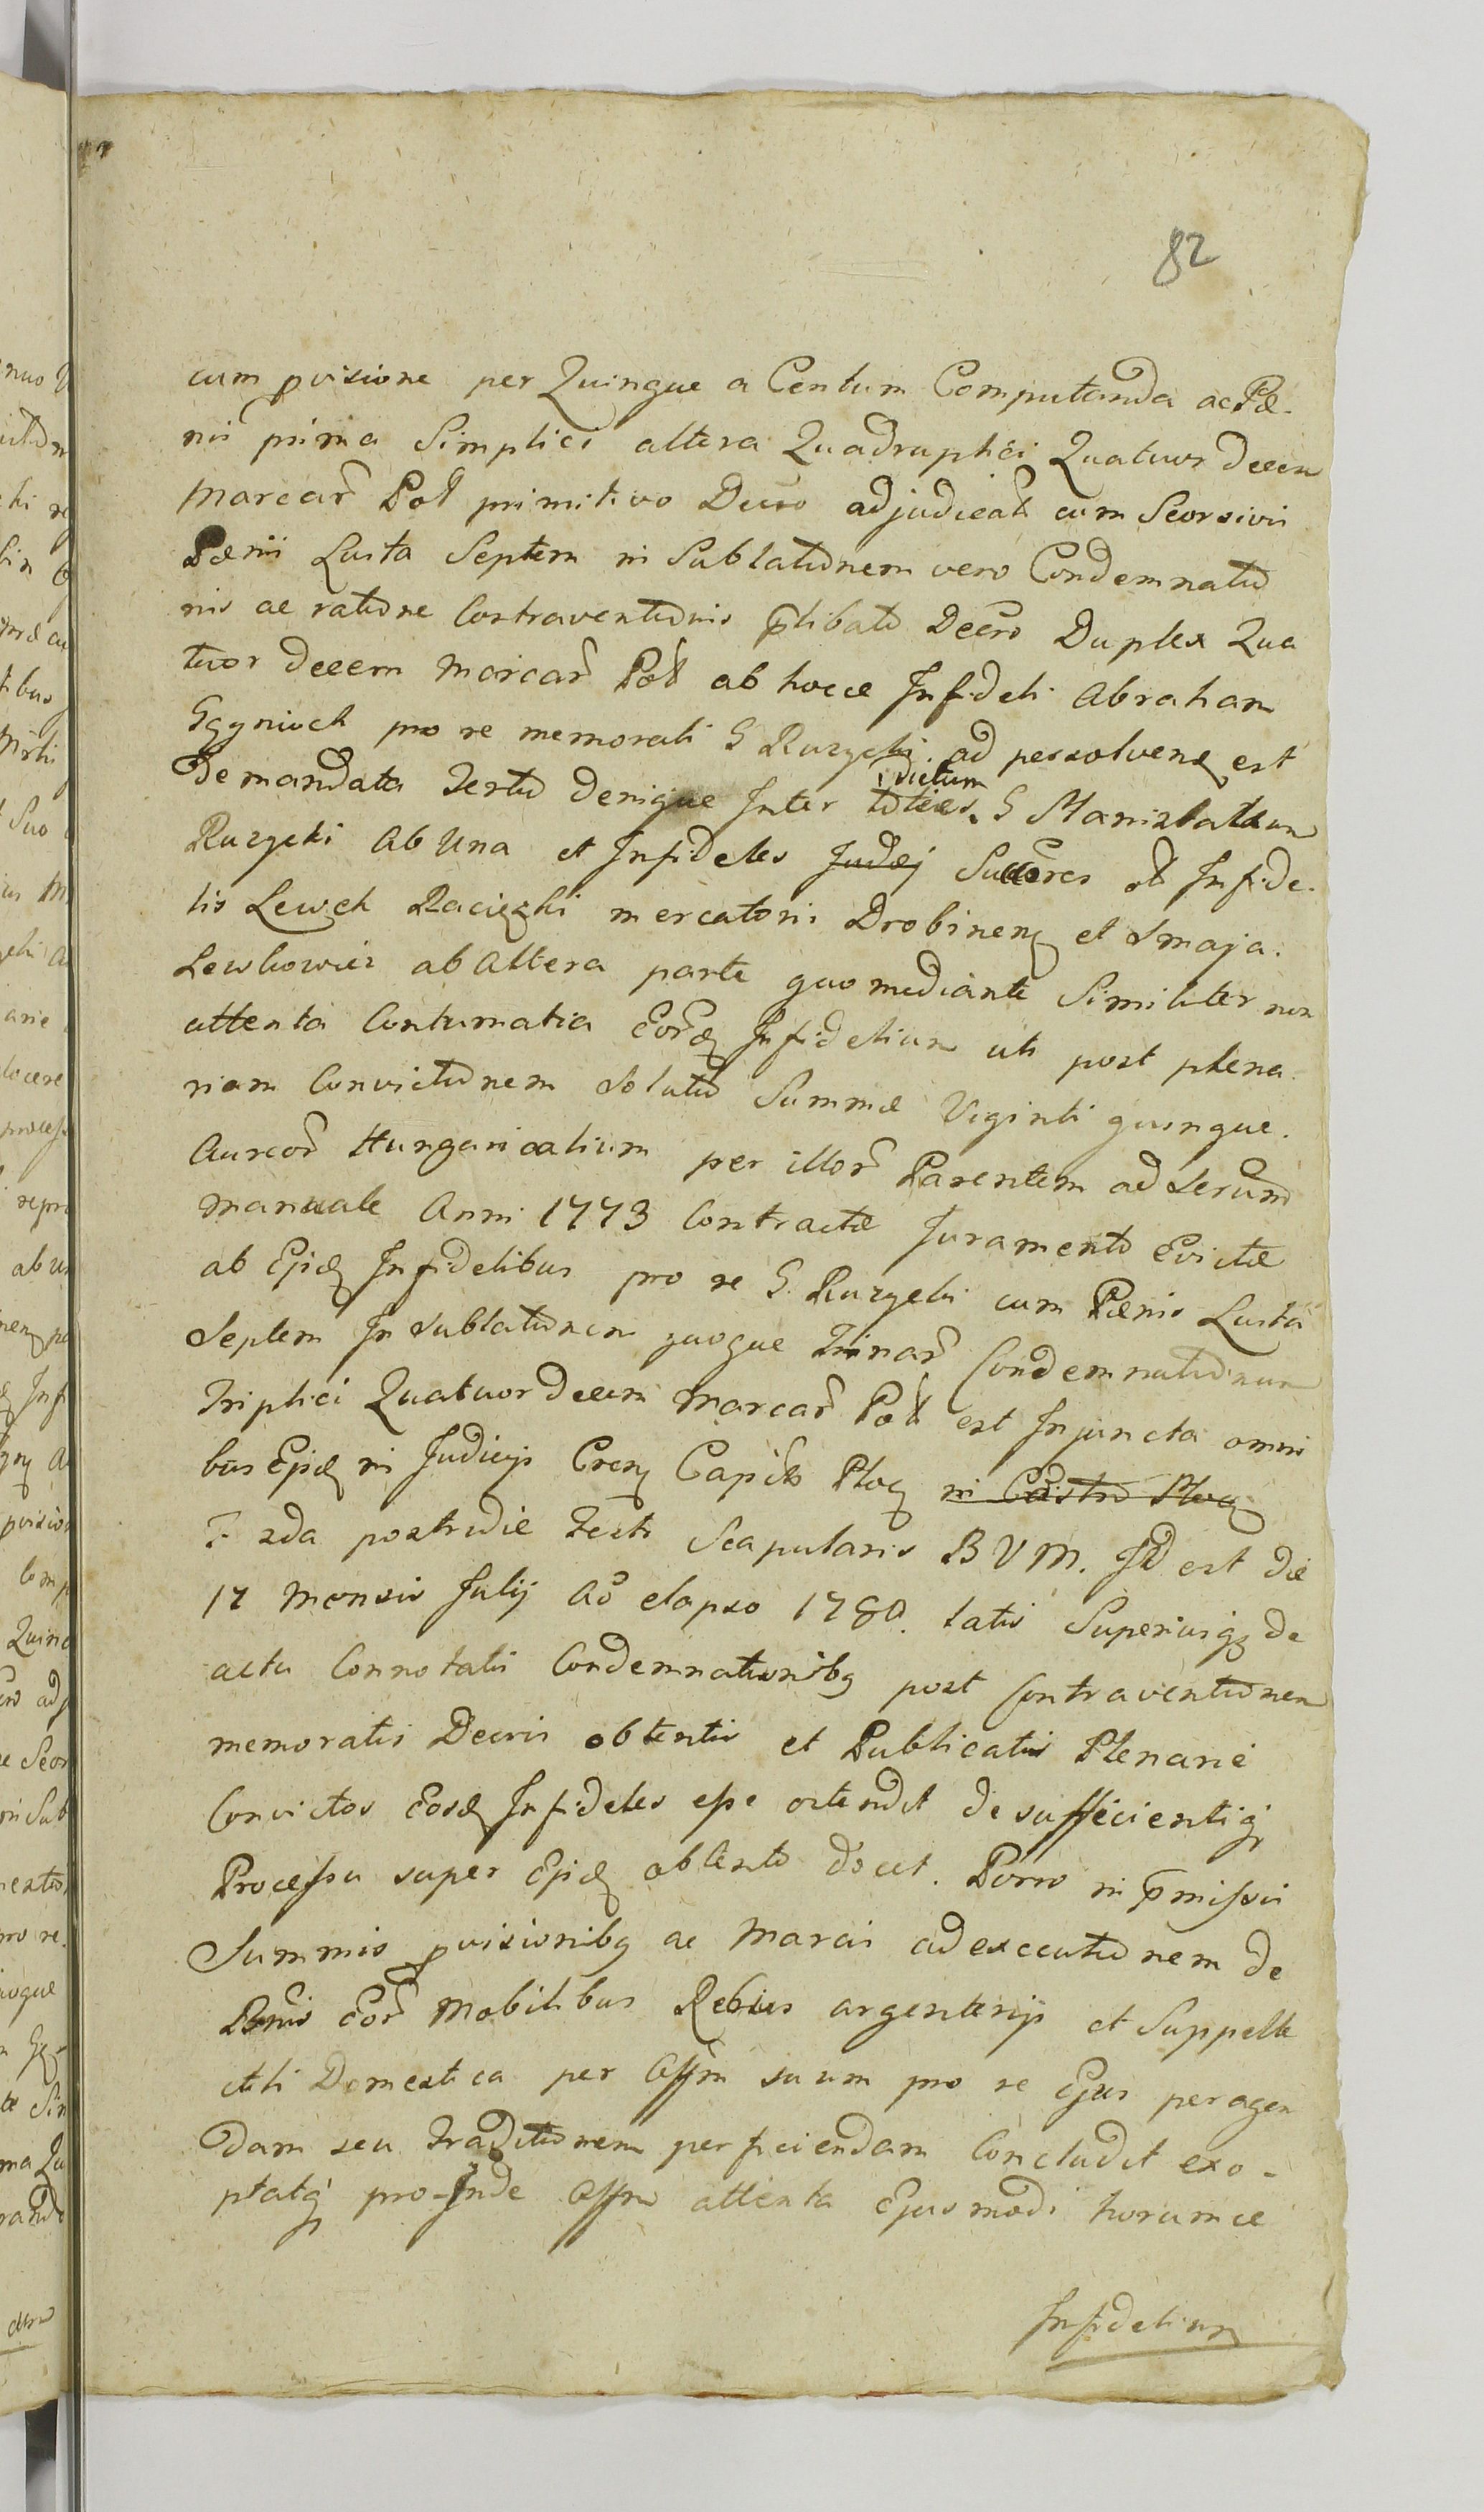 82
cum pvisione per Quinque a Centum Computanda ac Pæ-
nis prima Simplici altera Quadruplici Quatuor decem
Marcar Pol primitivo Decro adjudicat cum Seorsivis
Pænis Lusta Septem in Sublationem vero Condemnatio
nis ac ratione Contraventionis plibato Decro Duplex Qua
tuor decem Marcar Pol ab hocce Infideli Abraham
pro re memorati G Ruzycki ad persolvenq est
Demandata Tertio denique Inter toties dictum G Stanislaum
Ruzycki Ab Una et Infideles Judæj Succres ol Infide-
lis Lewek Raciązki mercatoris Drobinenq et Smaja
Lewkowicz ab Altera parte quo mediante Similiter non
attenta Contumatia Eorq Infidelium uti post plena
riam Convictionem Solutio Summæ Viginti quinque
Aureor Hungaricalium per illor Parentem ad Scrum
Manuale Anni 1773 Contractæ Juramento Evictæ
ab Ejsdq Infidelibus pro re G. Ruzycki cum Pænis Lusta
Septem In sublationem quoque Trinar Condemnationum
Triplici Quatuor decem Marcar Pol est Injuncta omni
bus Ejsdq in Judicijs Crenq Capitls Plocq in Castro Plocq
F 2da postridie Festi Scapularis B V M. Id est die
17 Mensis Julij Ao elapso 1780. latis Superiusq de
actu Connotatis Condemnationibq post Contraventionem
memoratis Decris obtentis et Publicatis Plenarie
Convictos Eosdq Infideles esse ostendit de sufficientiq
Processu super Ejsdq obtento docet. Porro in pmissis
Summis pvisionibq ac Marcis ad executionem de
Bonis Eor Mobilibus Rebus argenterijs et Suppelle
ctili Domestica per Offm suum pro re Ejus peragen
dam seu Traditionem perficiendam Concludit exo-
ptatq pro-Inde Offm attenta Ejusmodi horumce
Infidelium